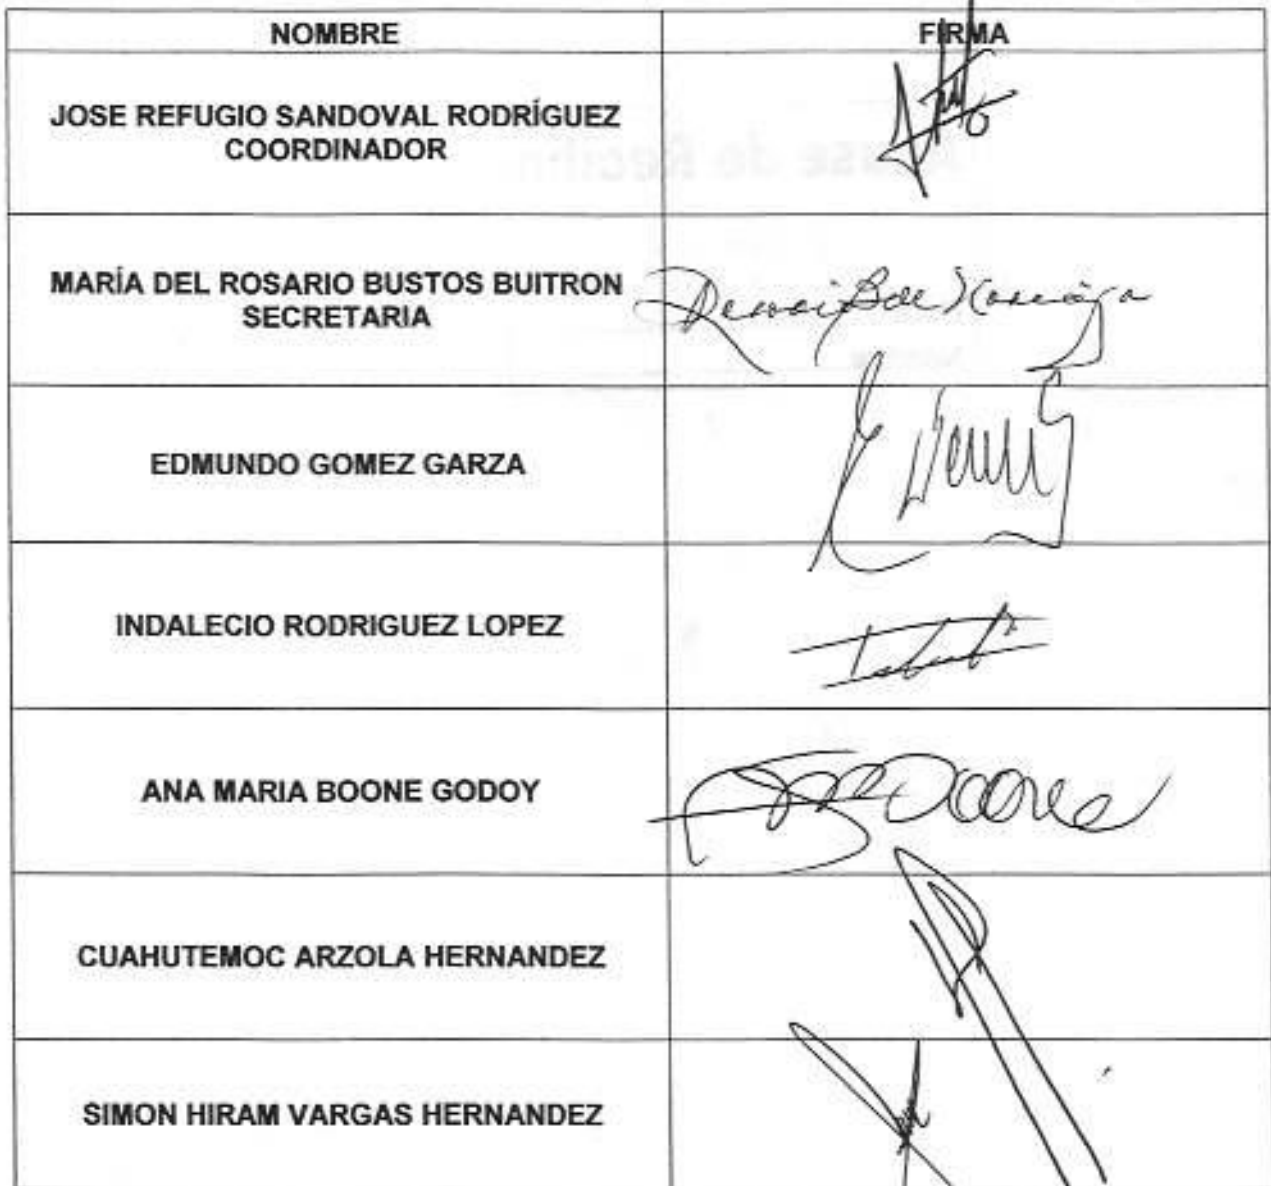 NOMBRE FIRMA
JOSE REFUGIO SANDOVAL RODRÍGUEZ
COORDINADOR
MARÍA DEL ROSARIO BUSTOS BUITRON
SECRETARIA
EDMUNDO GOMEZ GARZA
INDALECIO RODRIGUEZ LOPEZ
ANA MARIA BOONE GODOY
CUAHUTEMOC ARZOLA HERNANDEZ
SIMON HIRAM VARGAS HERNANDEZ